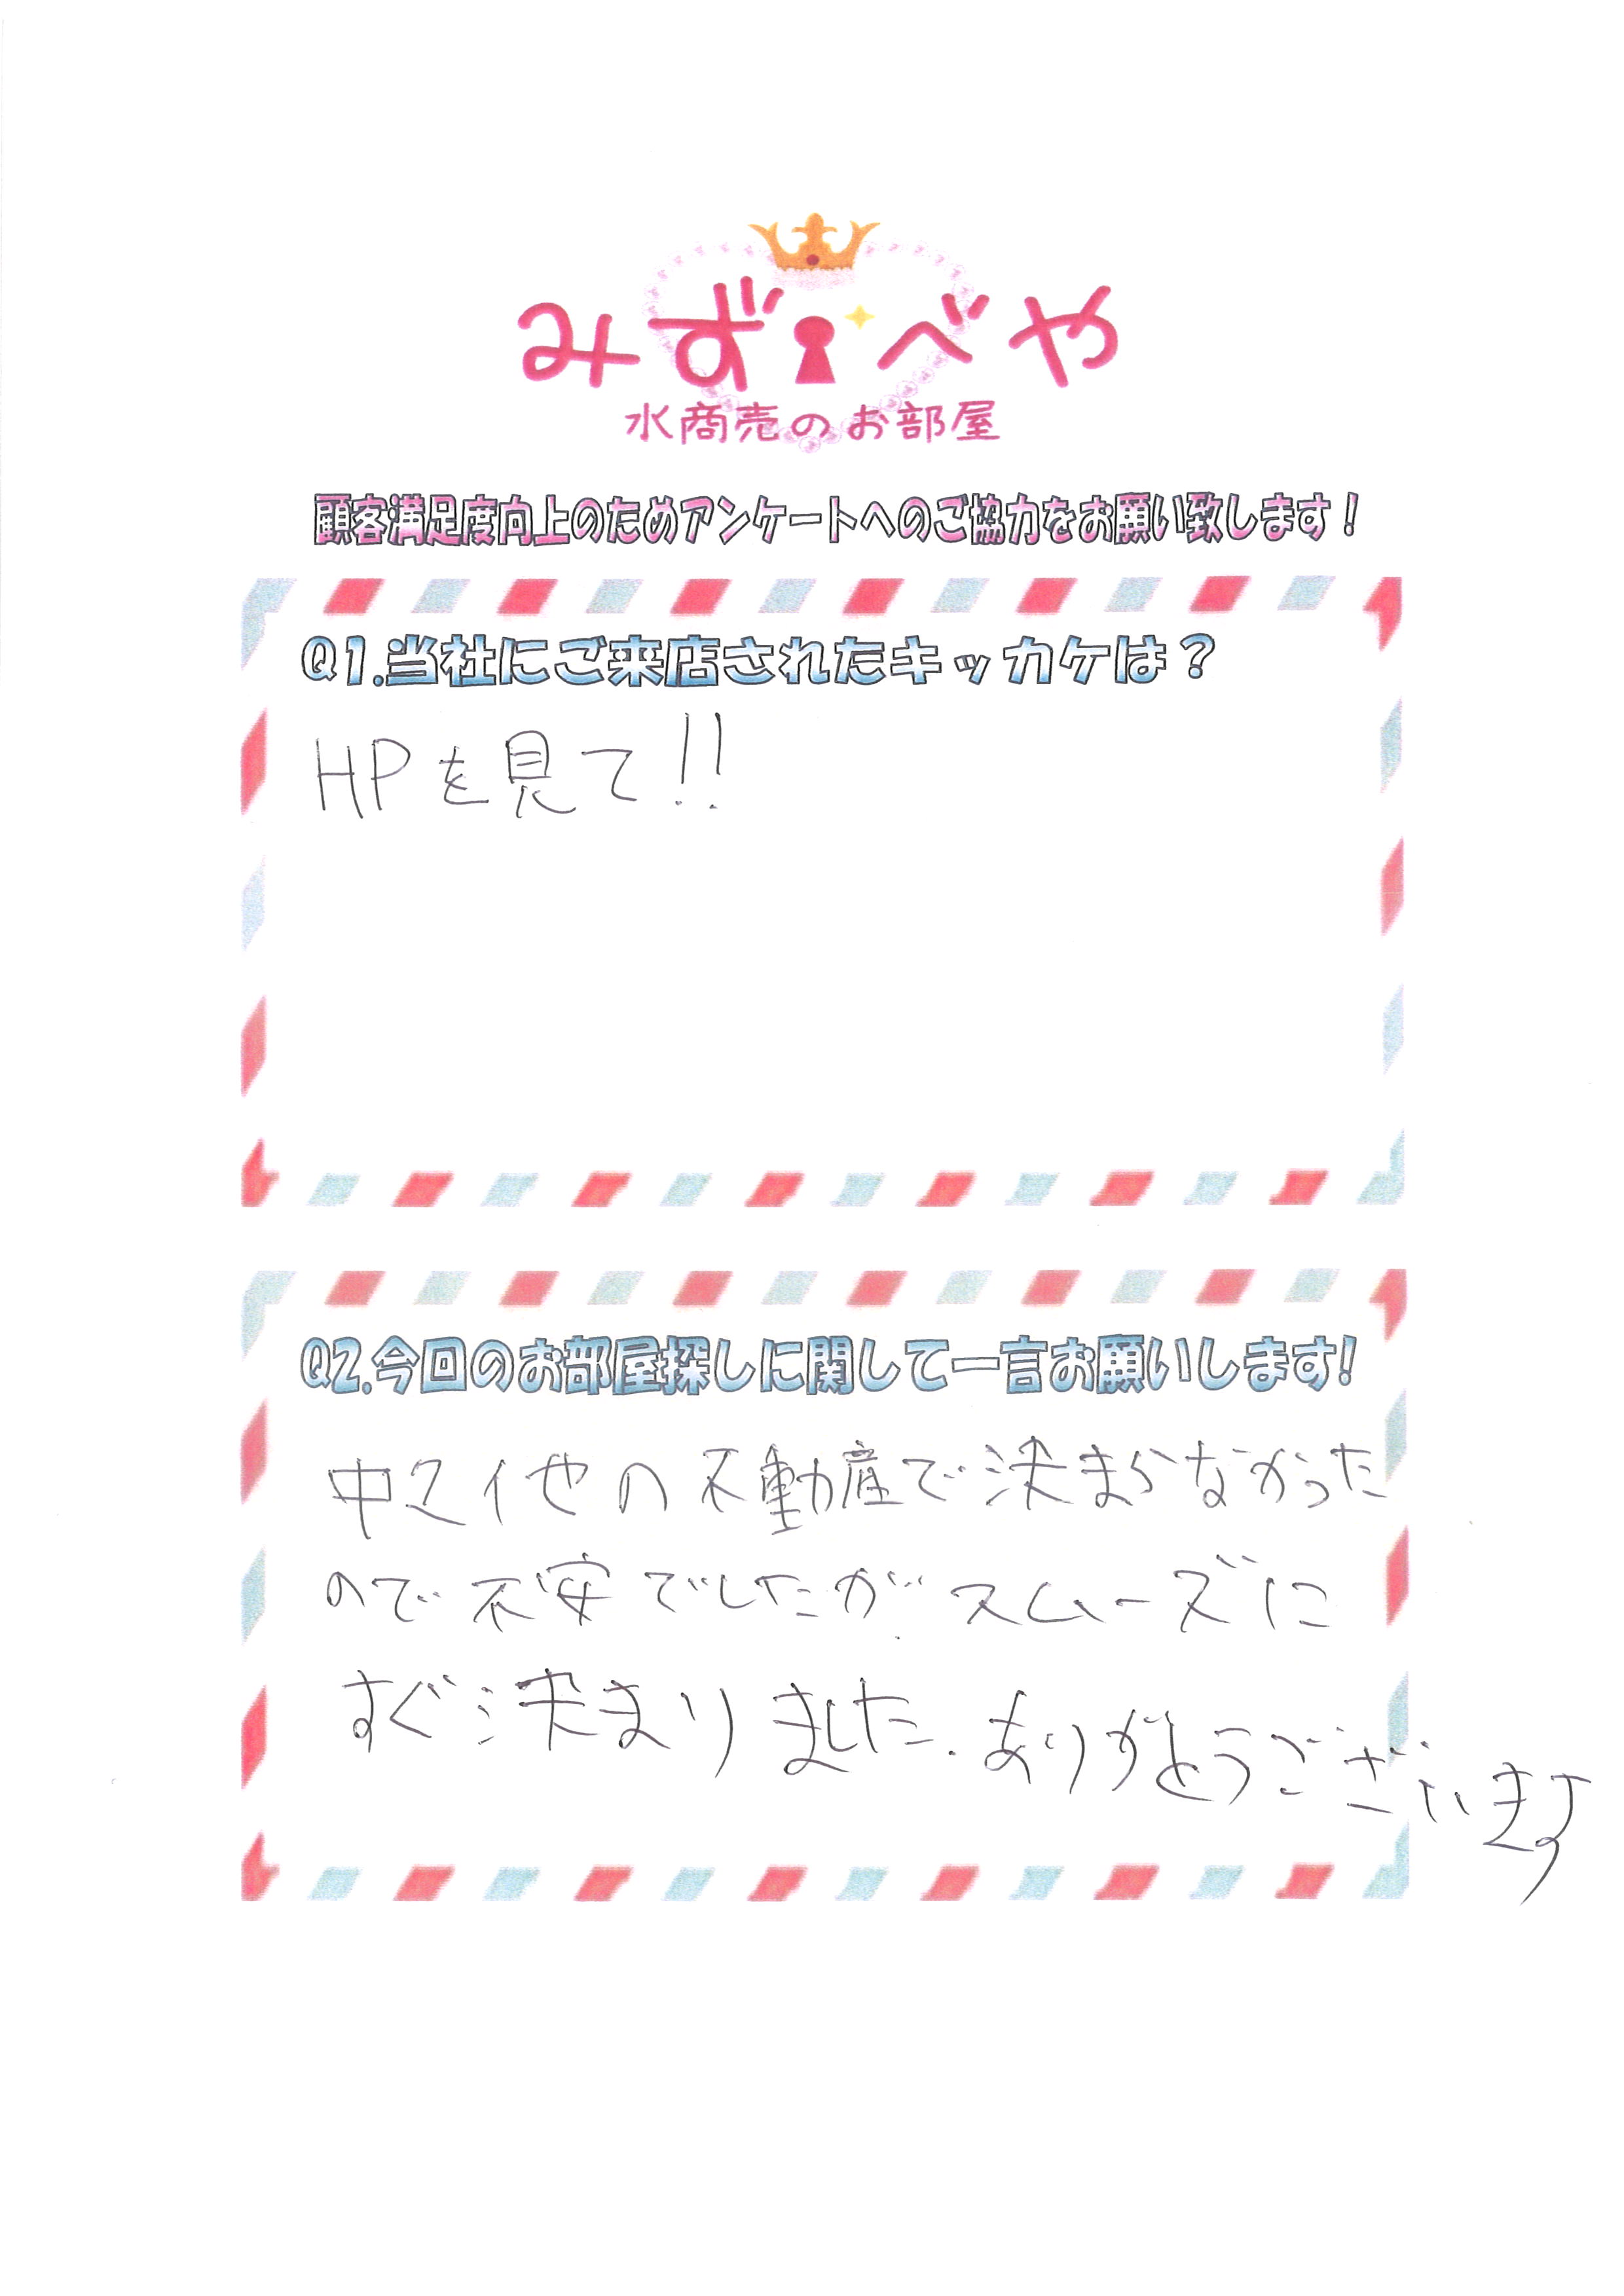 みず べや
水商売のお部屋
顧客満足度向上のためアンケートへのご協力をお願い致します！
Q1.当社にご来店されたキッカケは？
HPを見て!!
Q2.今回のお部屋探しに関して一言お願いします!
中々他の不動産で決まらなかった
ので不安でしたがスムーズに
すぐ決まりました.ありがとうございます